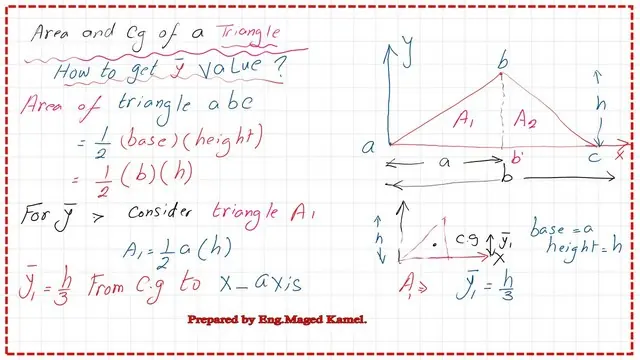 Area and Cg of a Triangle
How to get ȳ value ?
Area of triangle abc
= 1/2 (base) (height)
= 1/2 (b) (h)
For ȳ > Consider triangle A1
A1 = 1/2 a (h)
ȳ1 = h/3 From C.g to X-axis
y
b
A1
A2
h
a
b'
c
x
a
b
h
c.g
ȳ1
X
base = a
height = h
A1 ⇒ ȳ1 = h/3
Prepared by Eng.Maged Kamel.